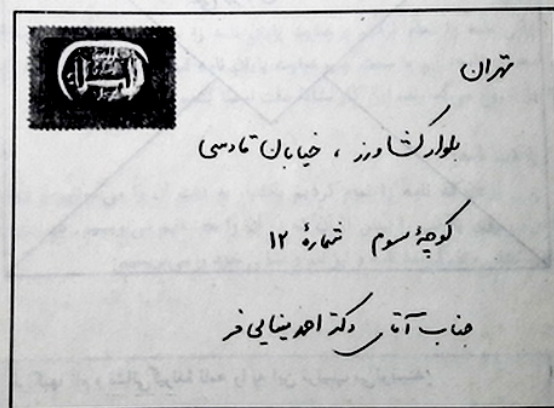 تهران
بلوار کشاورز ، خیابان قادسی
کوچهٔ سوم شمارهٔ ۱۲
جناب آقای دکتر احمد مینایی فر